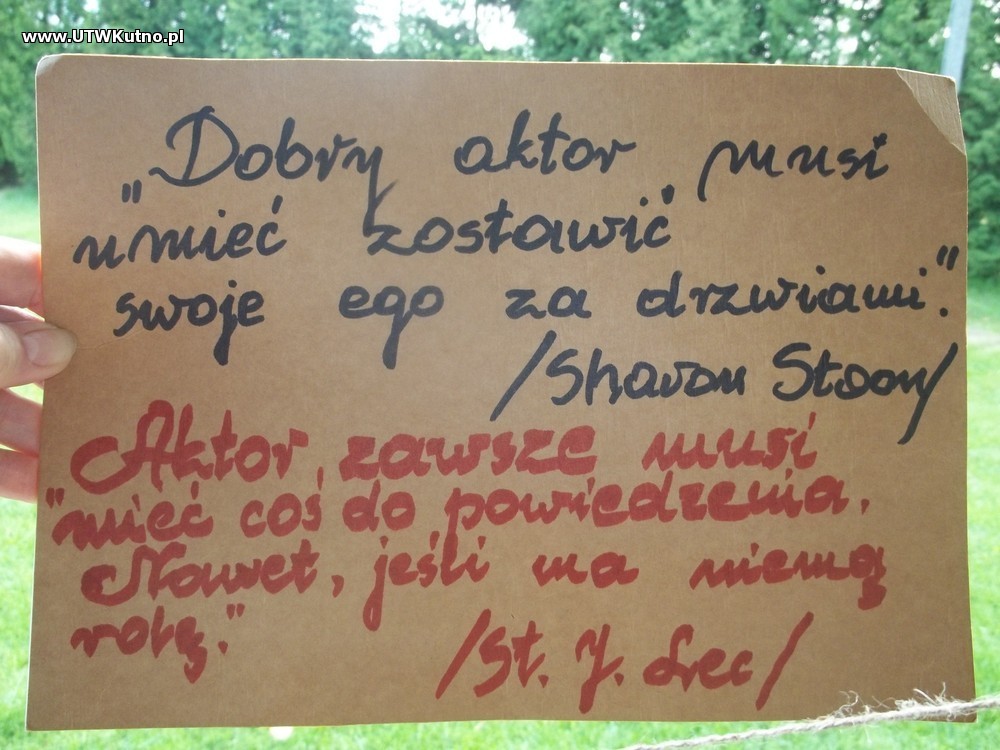 www.UTWKutno.pl
„Dobry aktor musi
umieć zostawić
swoje ego za drzwiami."
/Sharon Stoon/
„Aktor zawsze musi
mieć coś do powiedzenia.
Nawet, jeśli ma niemą
rolę."
/St. J. Lec/